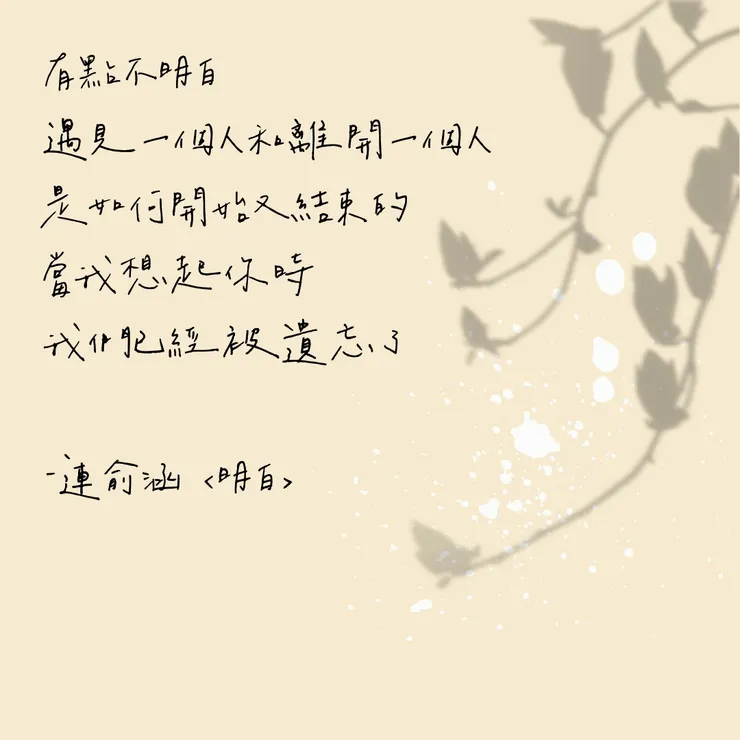 有點不明白
遇見一個人和離開一個人
是如何開始又結束的
當我想起你時
我們已經被遺忘了
-連俞涵<明白>